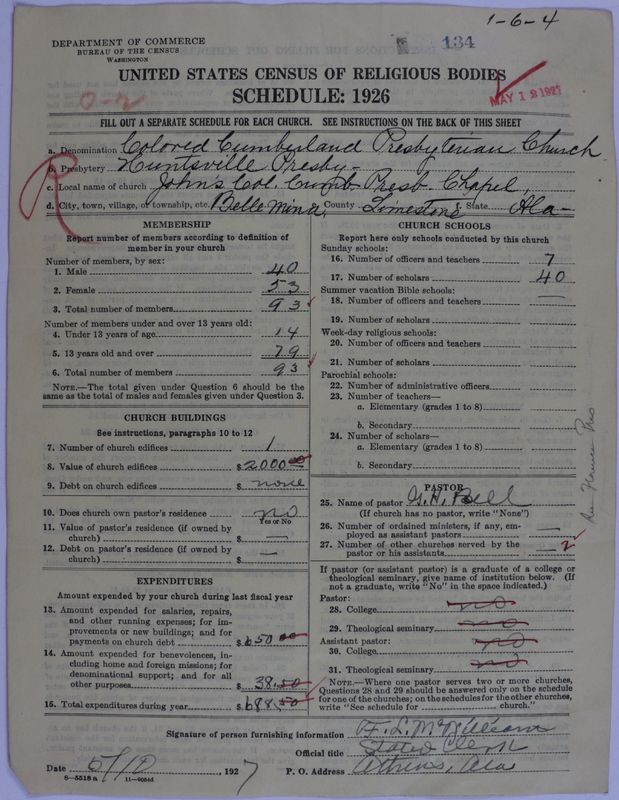 1-6-4
DEPARTMENT OF COMMERCE
BUREAU OF THE CENSUS
WASHINGTON
134
UNITED STATES CENSUS OF RELIGIOUS BODIES
SCHEDULE: 1926
MAY 12 1927
0-2
FILL OUT A SEPARATE SCHEDULE FOR EACH CHURCH. SEE INSTRUCTIONS ON THE BACK OF THIS SHEET
a. Denomination Colored Cumberland Presbyterian Church
b. Presbytery Huntsville Presby-
c. Local name of church Johns Col. Cumb. Presb. Chapel,
d. City, town, village, or township, etc. Belle Mina, County Limestone f. State Ala-
R
MEMBERSHIP
Report number of members according to definition of member in your church
Number of members, by sex:
1. Male 40
2. Female 53
3. Total number of members 93
Number of members under and over 13 years old:
4. Under 13 years of age 14
5. 13 years old and over 79
6. Total number of members 93
NOTE.—The total given under Question 6 should be the same as the total of males and females given under Question 3.
CHURCH BUILDINGS
See instructions, paragraphs 10 to 12
7. Number of church edifices 1
8. Value of church edifices $2000.00
9. Debt on church edifices $ none
10. Does church own pastor's residence no
Yes or No
11. Value of pastor's residence (if owned by church) $ —
12. Debt on pastor's residence (if owned by church) $ —
EXPENDITURES
Amount expended by your church during last fiscal year
13. Amount expended for salaries, repairs, and other running expenses; for improvements or new buildings; and for payments on church debt $650.00
14. Amount expended for benevolences, including home and foreign missions; for denominational support; and for all other purposes $38.50
15. Total expenditures during year $688.50
CHURCH SCHOOLS
Report here only schools conducted by this church
Sunday schools:
16. Number of officers and teachers 7
17. Number of scholars 40
Summer vacation Bible schools:
18. Number of officers and teachers —
19. Number of scholars
Week-day religious schools:
20. Number of officers and teachers
21. Number of scholars
Parochial schools:
22. Number of administrative officers
23. Number of teachers—
a. Elementary (grades 1 to 8)
b. Secondary
24. Number of scholars—
a. Elementary (grades 1 to 8)
b. Secondary
PASTOR
25. Name of pastor G. H. Bell
(If church has no pastor, write "None")
26. Number of ordained ministers, if any, employed as assistant pastors —
27. Number of other churches served by the pastor or his assistants — 2
If pastor (or assistant pastor) is a graduate of a college or theological seminary, give name of institution below. (If not a graduate, write "No" in the space indicated.)
Pastor:
28. College no
29. Theological seminary no
Assistant pastor:
30. College no
31. Theological seminary no
NOTE.—Where one pastor serves two or more churches, Questions 28 and 29 should be answered only on the schedule for one of the churches; on the schedules for the other churches, write "See schedule for church."
Signature of person furnishing information F. L. McWilliams
Official title Stated Clerk
Date 5/10 1927
P. O. Address Athens, Ala
8-5518 a